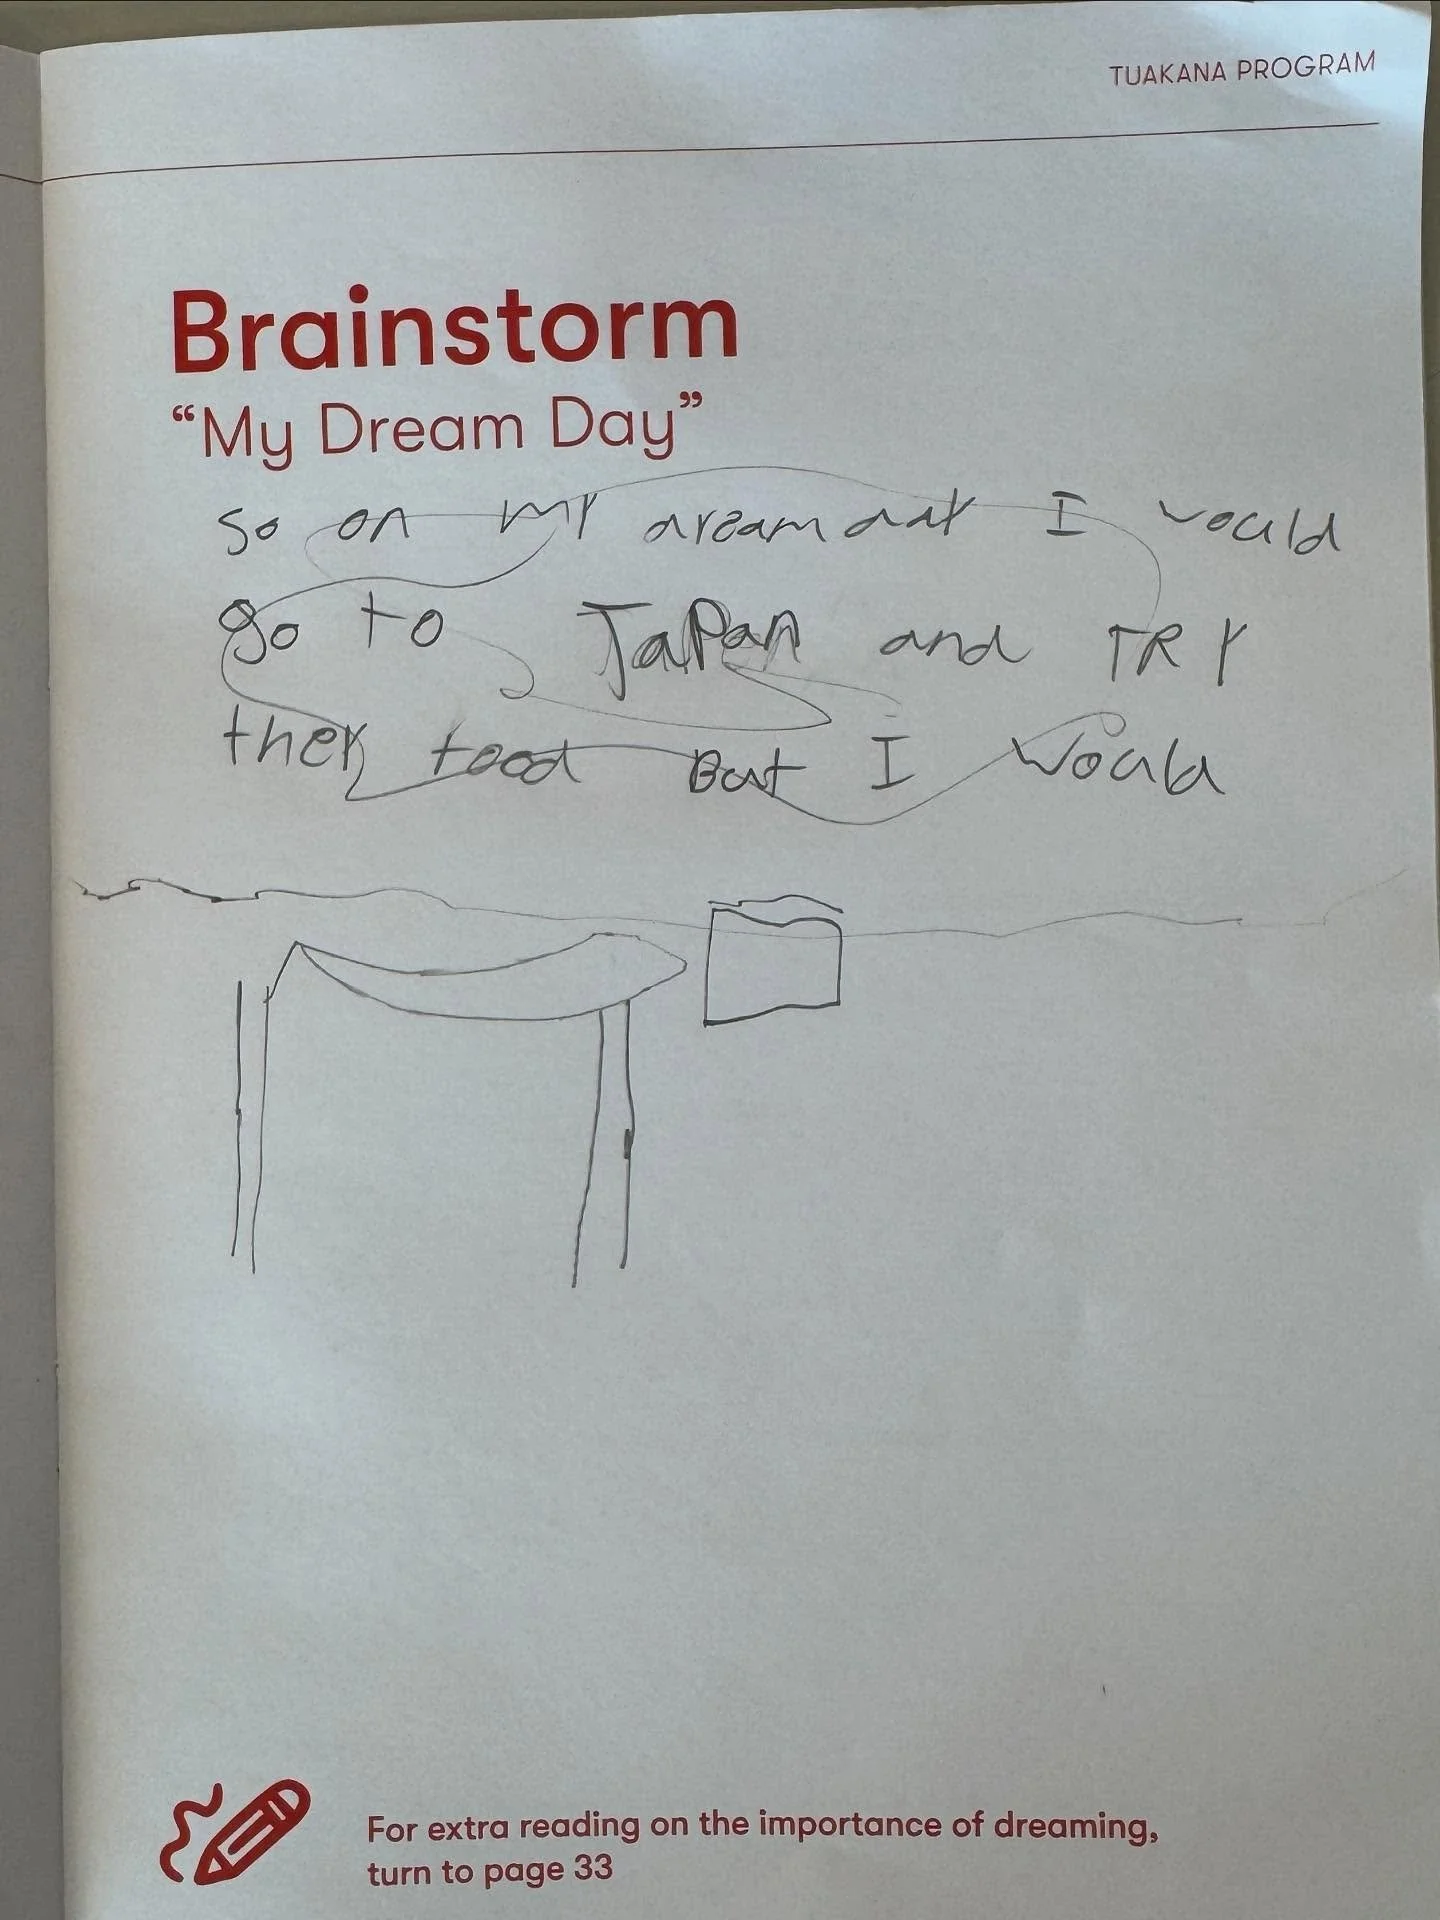 TUAKANA PROGRAM
Brainstorm
“My Dream Day”
So on my dream day I would
go to JaPan and TRY
they food But I would
For extra reading on the importance of dreaming,
turn to page 33